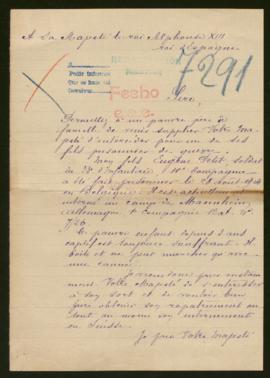 A Sa Majesté le roi Alphonse XIII
roi d'Espagne
7291
Fecho
Sire,
Permettez à un pauvre père de
famille de venir supplier Votre Ma-
jesté d'intercéder pour un de ses
fils prisonnier de guerre.
Mon fils Eugène Petit soldat
du d'Infanterie, Compagnie
a été fait prisonnier le août 1914
en Belgique. Il est actuellement
interné au camp de Mannheim,
Allemagne Compagnie Bat. N°
Ce pauvre enfant depuis 2 ans
captif est toujours souffrant. Il
boite et ne peut marcher qu'avec
une canne.
Je viens donc prier instam-
ment Votre Majesté de s'intéresser
à son sort et de vouloir bien
faire obtenir son rapatriement ou
tout au moins son internement
en Suisse.
Je prie Votre Majesté